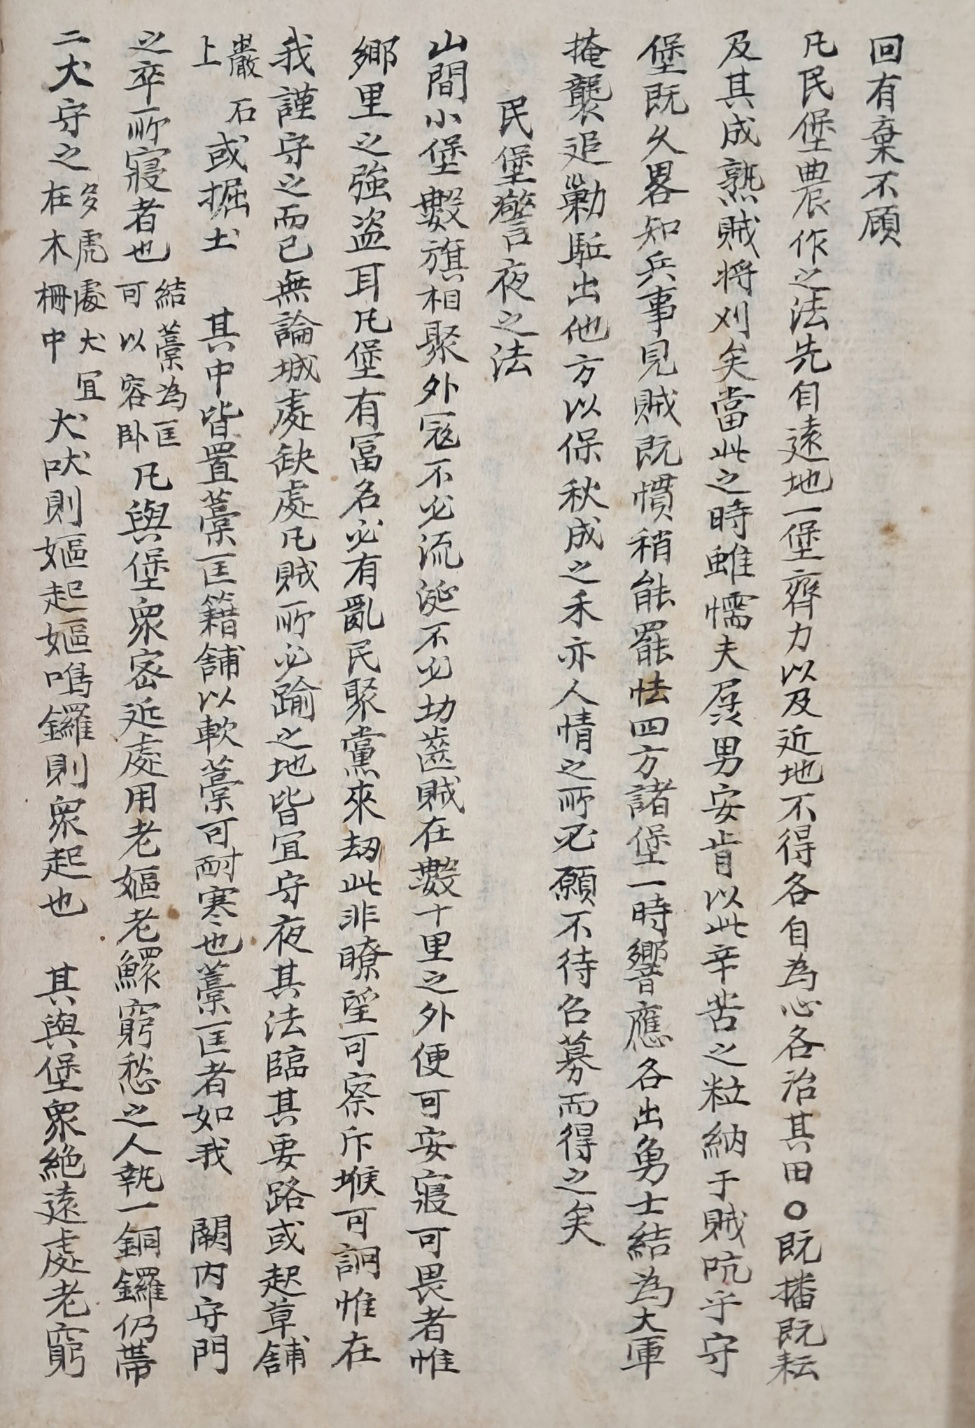 回有棄不顧
凡民堡農作之法先自遠地一堡齊力以及近地不得各自為心各治其田○既播既耘
及其成熟賊將刈矣當此之時雖懦夫孱男安肯以此辛苦之粒納于賊吭乎守
堡既久畧知兵事見賊既慣稍能罷怯四方諸堡一時響應各出勇士結為大軍
掩襲追勦駈出他方以保秋成之禾亦人情之所必願不待召募而得之矣
民堡警夜之法
山間小堡數旗相聚外寇不必流涎不必切齒賊在數十里之外便可安寢可畏者惟
鄉里之強盜耳凡堡有富名必有亂民聚黨來刼此非瞭望可察斥堠可詗惟在
我謹守之而已無論城處缺處凡賊所必踰之地皆宜守夜其法臨其要路或起草舖
巖石上或掘土 其中皆置藁匡籍舖以軟藁可耐寒也藁匡者如我 闕內守門
之卒所寢者也結藁為匡可以容臥凡與堡衆密近處用老嫗老鰥窮愁之人執一銅鑼仍帶
二犬守之多虎處犬宜在木柵中犬吠則嫗起嫗鳴鑼則衆起也 其與堡衆絶遠處老窮